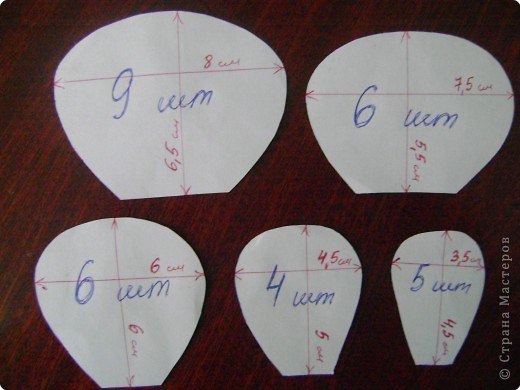 8 см
9 шт
6,5 см
7,5 см
6 шт
5,5 см
6 см
6 шт
6 см
4,5 см
4 шт
5 см
3,5 см
5 шт
4,5 см
© Страна Мастеров